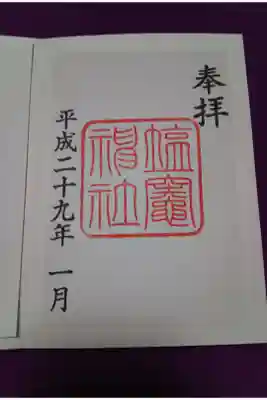 奉拝
塩竈
神社
平成二十九年 一月